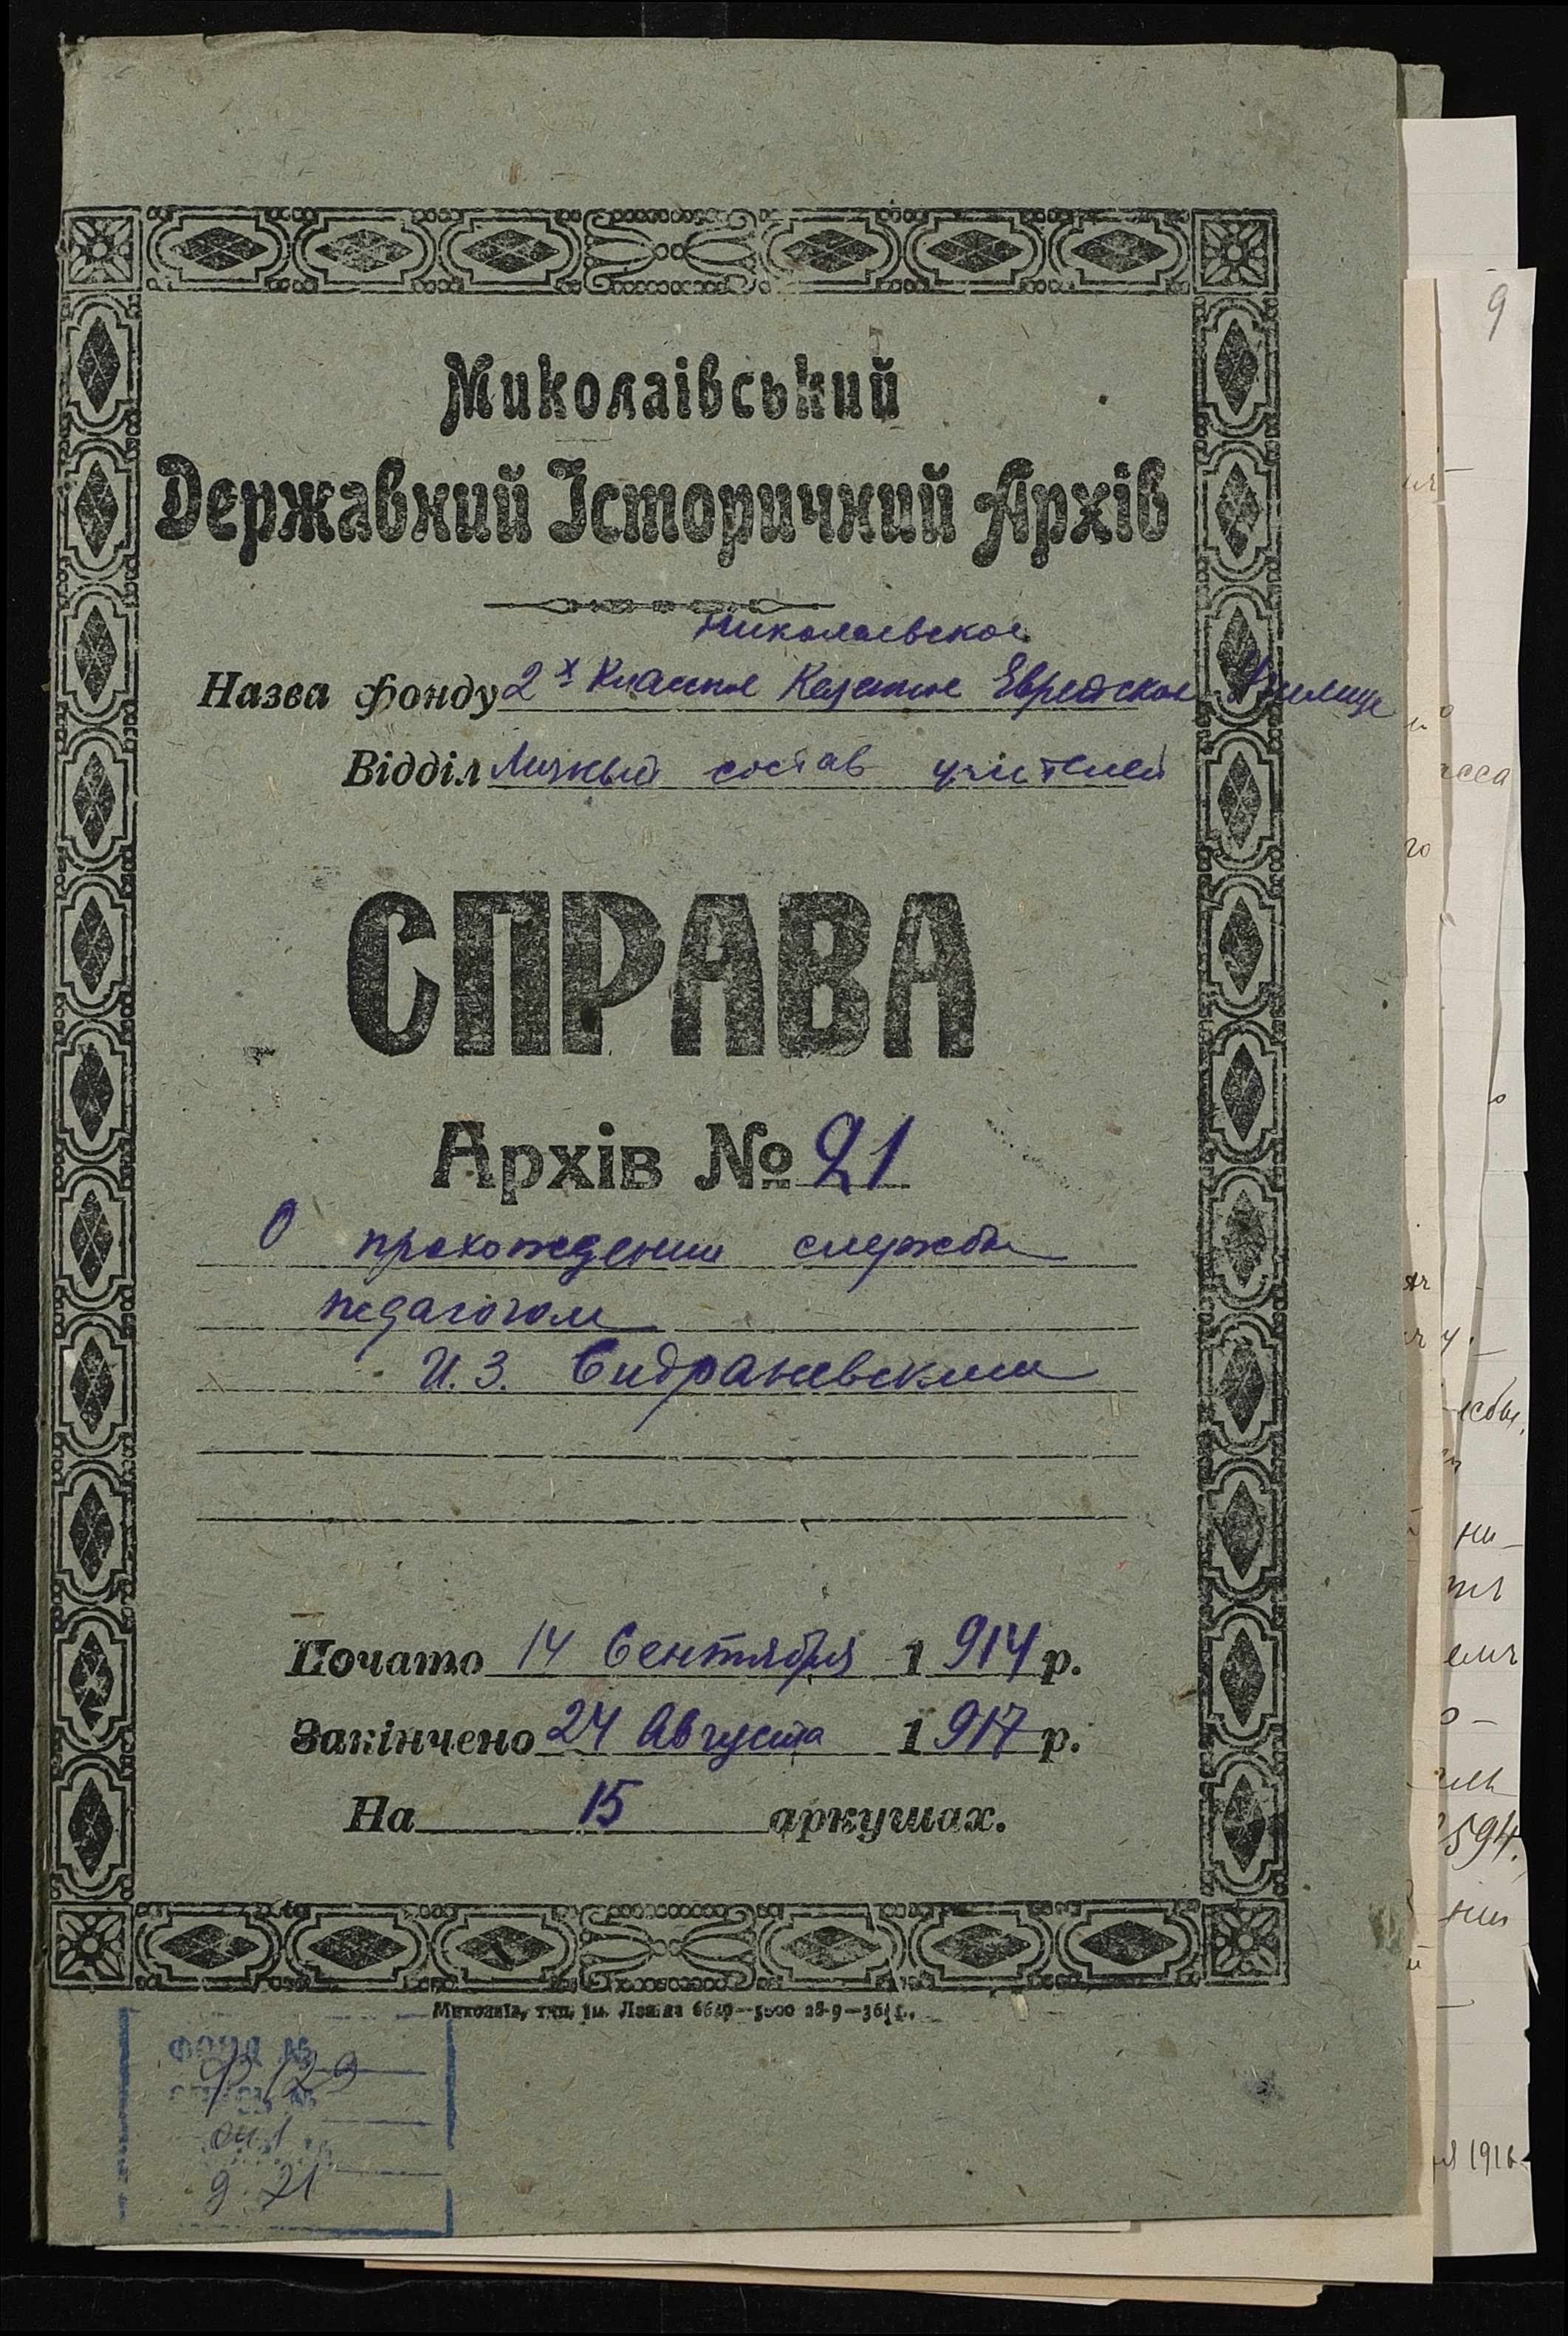 Миколаівський
Державний Історичний Архів
Николаевское
Назва фонду 2х Классное Казенное Еврейское Училище
Відділ Личный состав учителей
СПРАВА
Архів № 21
О прохождении службы
педагогом
И. З. Сидраневским
Почато 14 Сентября 1914 р.
Закінчено 24 Августа 1917 р.
На 15 аркушах.
Миколаїв, тип. ім. Леніна
ФОНД №
Ф 129
оп 1
д. 21
9
асса
го
ни
594.
1916